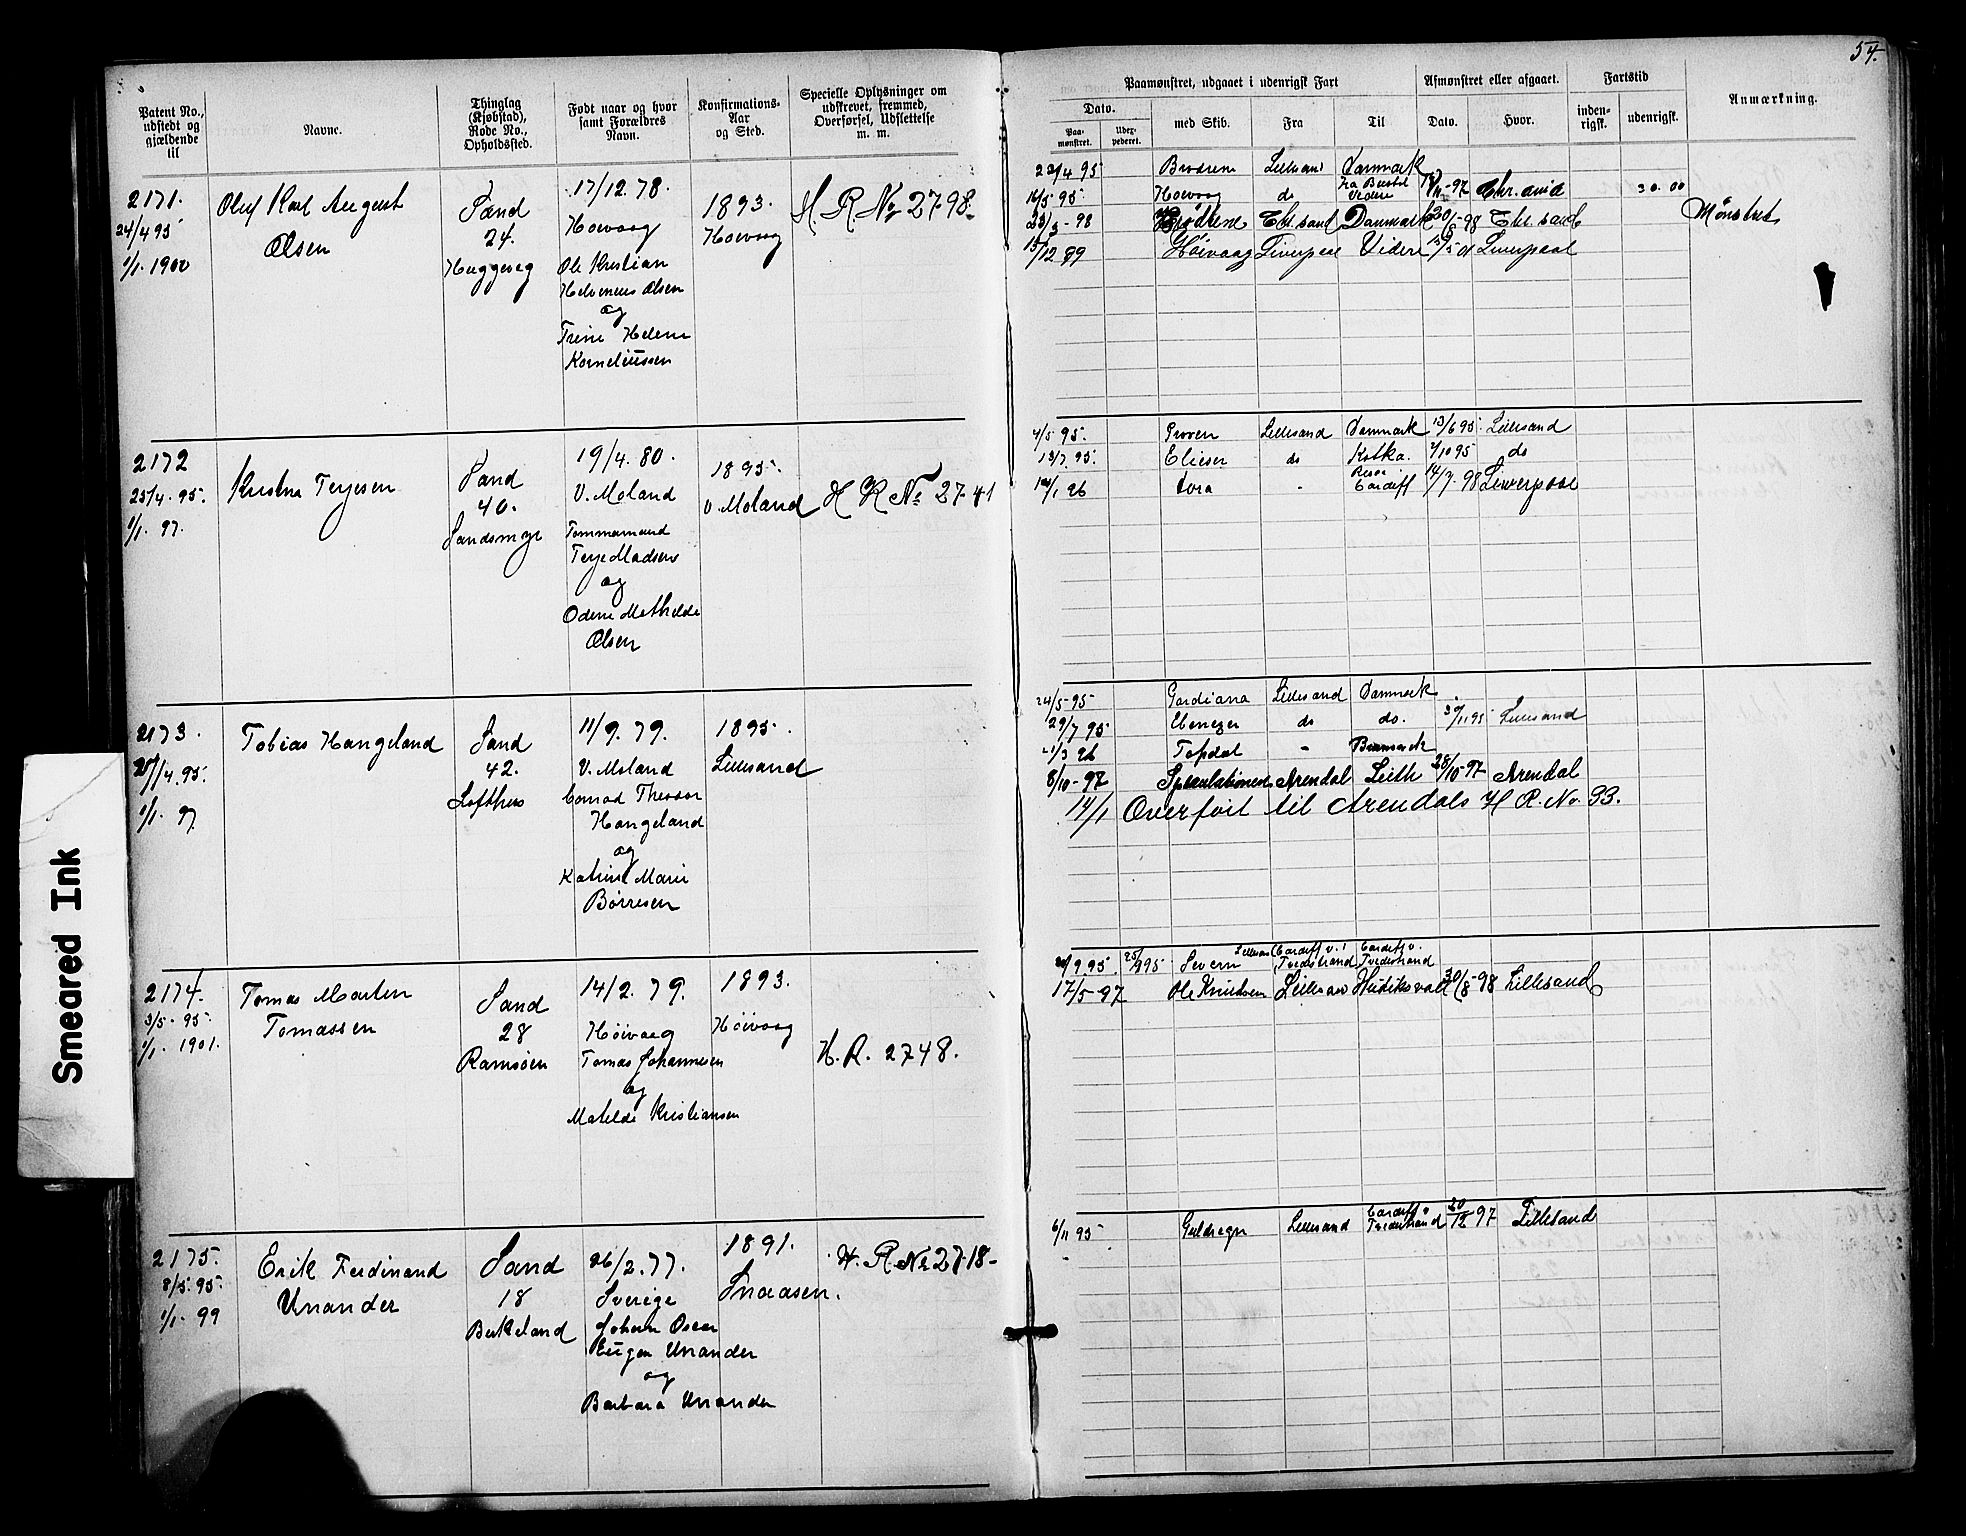 54.
Patent No., udstedt og gjældende til
Navne.
Thinglag (Kjøbstad), Rode No., Opholdssted.
Født naar og hvor samt Forældres Navn.
Konfirmations-Aar og Sted.
Specielle Oplysninger om udskrevet, fremmed, Overførsel, Udslettelse m. m.
Paamønstret, udgaaet i udenrigsk Fart
Afmønstret eller afgaaet.
Fartstid
Anmærkning.
Dato.
Paa-mønstret.
Udex-pederet.
med Skib.
Fra
Til
Dato.
Hvor.
inden-rigsk.
udenrigsk.
2171.
24/4 95
1/1. 1900
Oluf Karl August
Olsen
Sand
24.
Huggeseg
17/12. 78.
Hoevaag
Ole Kristian
Helvenius Olsen
og
Trine Helene
Korneliussen
1893.
Hoevaag
H R No 2798.
23/4 95 Brødrene Lillesand Danmark
16/5 95 Hoevaag do Videre 97 Chr.ania 30.00
23/3-98 Brødrene Chr.sand Danmark 20/8-98 Chr.sand Mønstret
15/12 99 Höivaag Liverpool Videre 01 Liverpool
2172
25/4.95.
1/1. 97.
Kristen Terjesen
Sand
40.
Sandsmyr
19/4. 80.
V. Moland
Tømmermand
Terje Madsen
og
Odine Mathilde
Olsen
1895.
V. Moland
H R No 2741
4/5 95. Proven Lillesand Danmark 13/6 95. Lillesand
13/7.95. Elieser do Kotka. 2/10 95 do
1/1 96 Lora - Cardiff 14/7-98 Liverpool
2173.
27/4.95.
1/1. 97.
Tobias Hangeland
Sand
42.
Lofthus
11/9. 79.
V. Moland
Conrad Theodor
Hangeland
og
Katrine Marie
Børresen
1895.
Lillesand
24/5-95 Gardiana Lillesand Danmark
29/7 95 Ebenezer do do. 30/11 95 Lillesand
21/3 96 Topdal - Danmark
8/10-97 Spekulationen Arendal Leith 28/10-97 Arendal
14/1 Overført til Arendals H R. No. 33.
2174.
3/5-95.
1/1. 1901.
Tomas Marten
Tomassen
Sand
28
Ramsøen
14/2. 79.
Höivaag
Tomas Johannesen
og
Matilde Kristiansen
1893.
Höivaag
H. R. 2748.
9.95. 25/9 95 Severn Lillesand Cardiff v. Tvedestrand Cardiff v. Tvedestrand
17/5-97 Ole Knudsen Lillesand Hudiksvall 30/8-98 Lillesand
2175.
8/5.95.
1/1. 99
Erik Ferdinand
Unander
Sand
18
Birkeland
26/2. 77.
Sverige
Johan Oscar
Eugen Unander
og
Barbara Unander
1891.
Snaasen.
H. R No 2718-
6/11 95 Guldregn Lillesand Cardiff v Tvedestrand 20/12 97 Lillesand
Smeared Ink